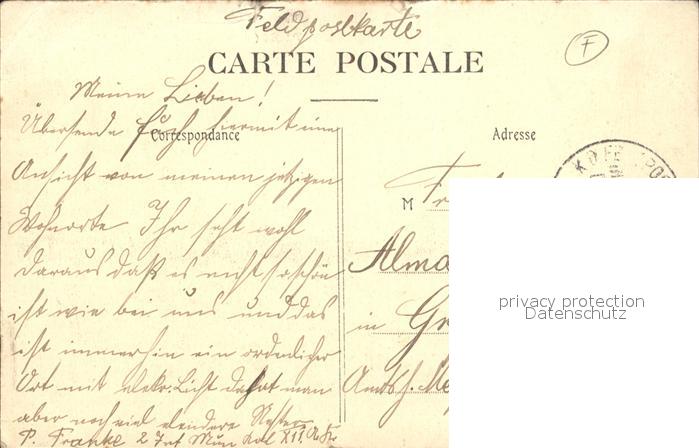 Feldpostkarte
F
CARTE POSTALE
Meine Lieben!
Übersende Euch hiermit eine
Correspondance
Adresse
Ansicht von meinen jetzigen
M
Wohnorte Ihr seht wohl
daraus daß es nicht so schön
Alma
ist wie bei uns und das
in Gr
ist immerhin ein ordentlicher
Ort mit elektr. Licht da hat man
Amtsh. Me
aber noch viel elendere Nester
P. Franke 2 Inf Mun Kol XII
privacy protection
Datenschutz